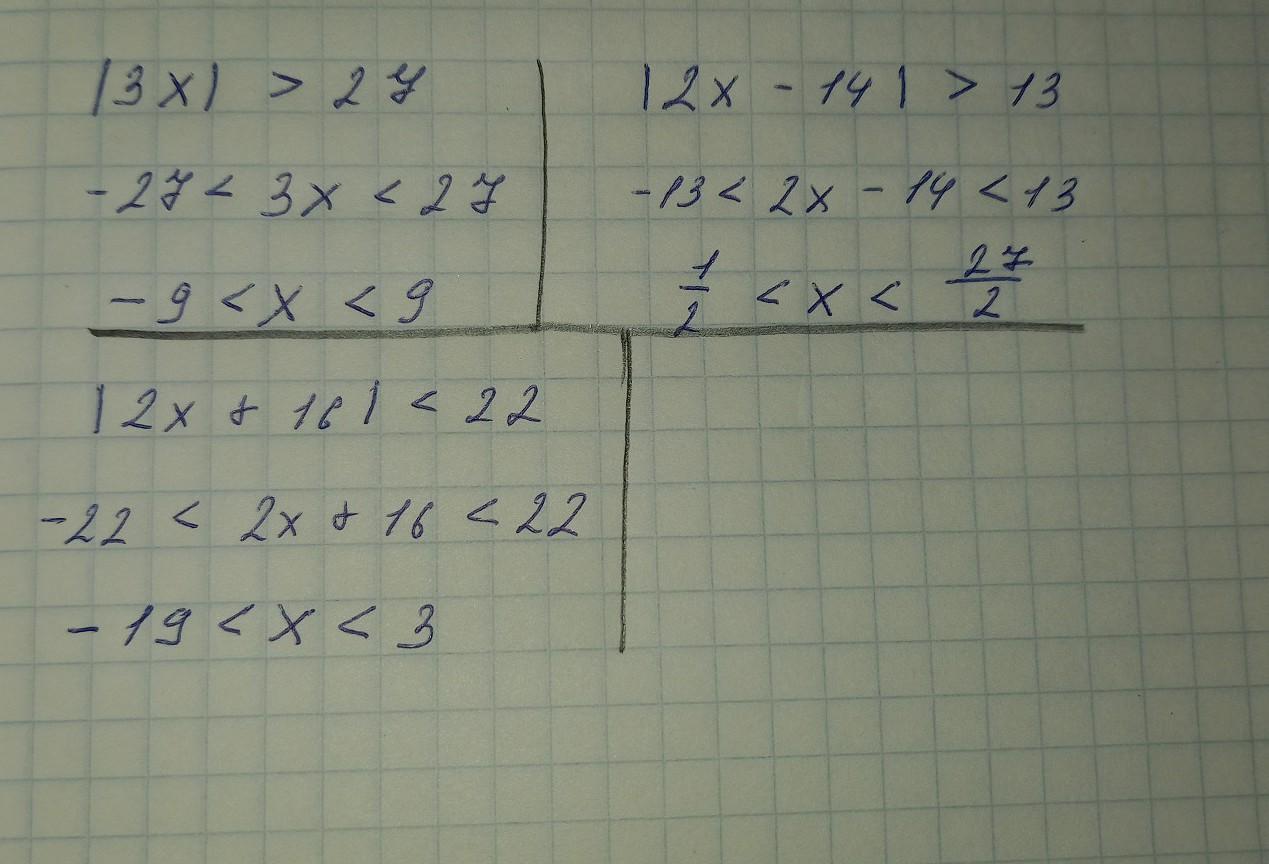 |3x| > 27
-27 < 3x < 27
-9 < x < 9
|2x - 14| > 13
-13 < 2x - 14 < 13
1/2 < x < 27/2
|2x + 16| < 22
-22 < 2x + 16 < 22
-19 < x < 3